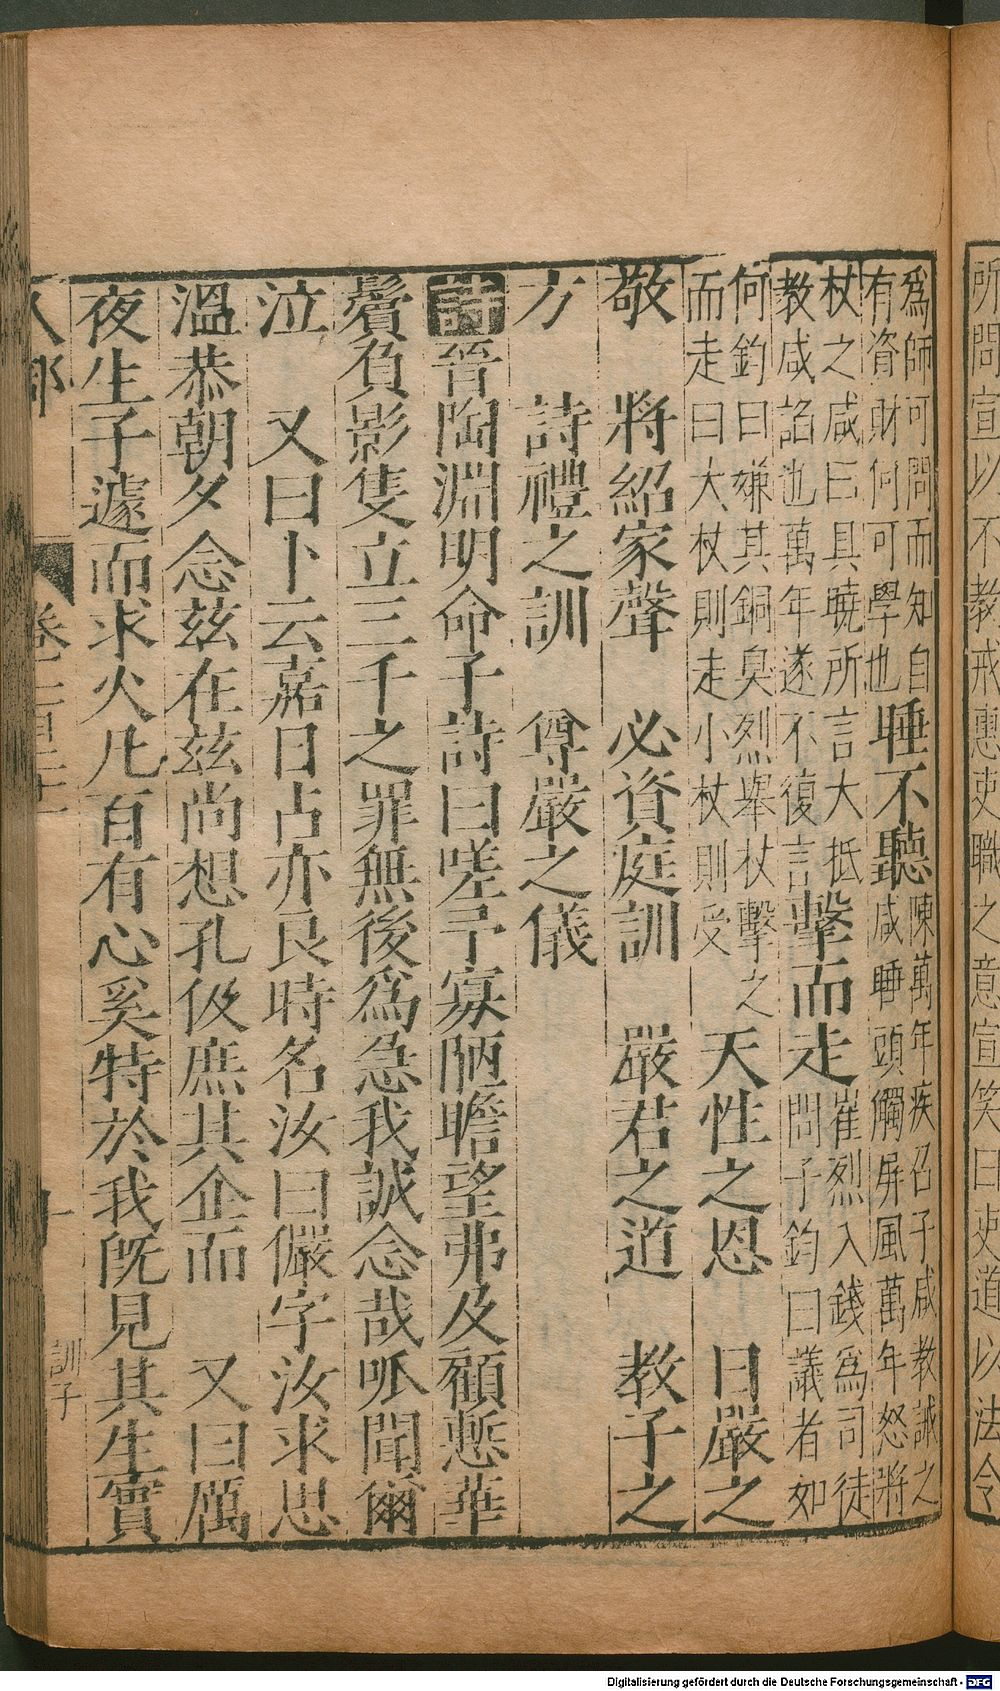 所問宣以不教戒惠吏職之意宣笑曰吏道以法令
爲師可問而知自
有資財何可學也
睡不聽
陳萬年疾召子咸教誡之
咸睡頭觸屏風萬年怒將
杖之咸曰具曉所言大抵
教咸諂也萬年遂不復言
擊而走
崔烈入錢爲司徒
問子鈞曰議者如
何鈞曰嫌其銅臭烈舉杖擊之
而走曰大杖則走小杖則受
天性之恩 日嚴之
敬 將紹家聲 必資庭訓 嚴君之道 教子之
方 詩禮之訓 尊嚴之儀
詩晉陶淵明命子詩曰嗟予寡陋瞻望弗及顧慙華
鬢負影隻立三千之罪無後爲急我誠念哉呱聞爾
泣 又曰卜云嘉日占亦良時名汝曰儼字汝求思
溫恭朝夕念兹在兹尚想孔伋庶其企而 又曰厲
夜生子遽而求火凡百有心奚特於我旣見其生實
人部
卷二百
訓子
Digitalisierung gefördert durch die Deutsche Forschungsgemeinschaft - DFG